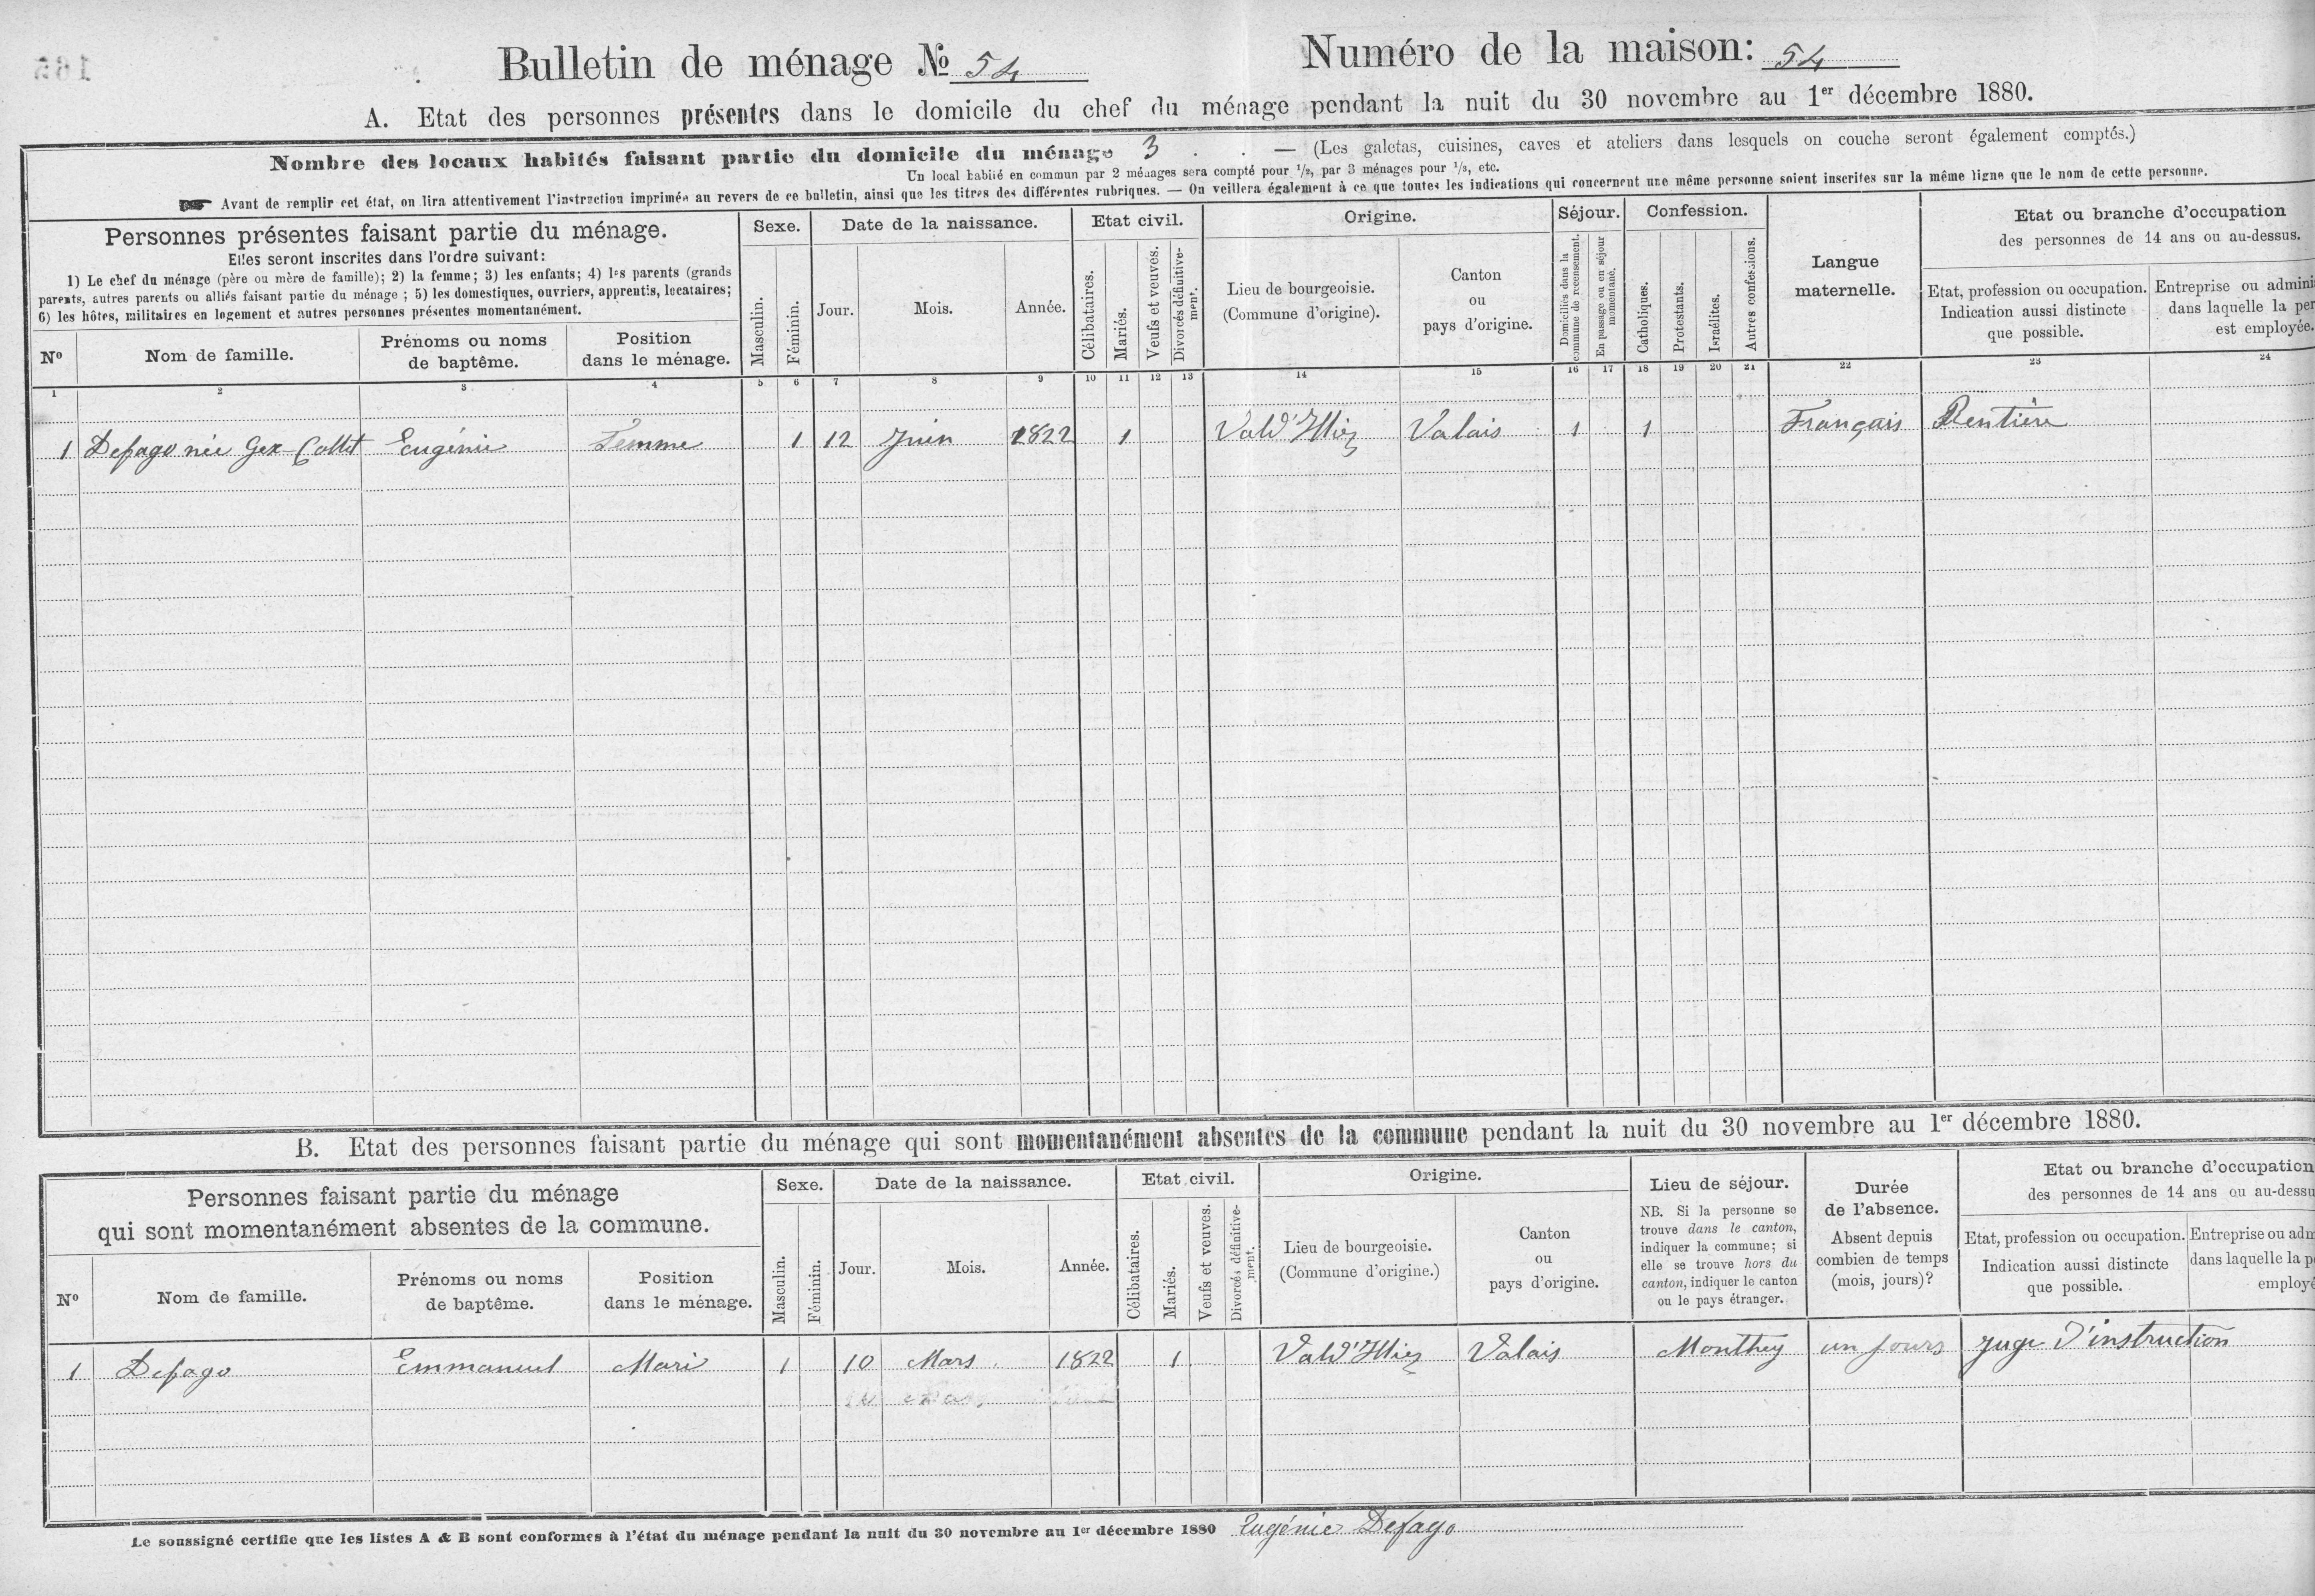 165
Bulletin de ménage № 54
Numéro de la maison: 54
A. Etat des personnes présentes dans le domicile du chef du ménage pendant la nuit du 30 novembre au 1er décembre 1880.
Nombre des locaux habités faisant partie du domicile du ménage 3 . . — (Les galetas, cuisines, caves et ateliers dans lesquels on couche seront également comptés.)
Un local habité en commun par 2 ménages sera compté pour 1/2, par 3 ménages pour 1/3, etc.
Avant de remplir cet état, on lira attentivement l'instruction imprimée au revers de ce bulletin, ainsi que les titres des différentes rubriques. — On veillera également à ce que toutes les indications qui concernent une même personne soient inscrites sur la même ligne que le nom de cette personne.
Personnes présentes faisant partie du ménage.
Elles seront inscrites dans l'ordre suivant:
1) Le chef du ménage (père ou mère de famille); 2) la femme; 3) les enfants; 4) les parents (grands
parents, autres parents ou alliés faisant partie du ménage ; 5) les domestiques, ouvriers, apprentis, locataires;
6) les hôtes, militaires en logement et autres personnes présentes momentanément.
No
Nom de famille.
Prénoms ou noms
de baptême.
Position
dans le ménage.
Sexe.
Masculin.
Féminin.
Date de la naissance.
Jour.
Mois.
Année.
Etat civil.
Célibataires.
Mariés.
Veufs et veuves.
Divorcés définitive-
ment.
Origine.
Lieu de bourgeoisie.
(Commune d'origine).
Canton
ou
pays d'origine.
Séjour.
Domiciliés dans la
commune de recensement.
En passage ou en séjour
momentané.
Confession.
Catholiques.
Protestants.
Israélites.
Autres confessions.
Langue
maternelle.
Etat ou branche d'occupation
des personnes de 14 ans ou au-dessus.
Etat, profession ou occupation.
Indication aussi distincte
que possible.
Entreprise ou admini
dans laquelle la per
est employée.
1 2 3 4 5 6 7 8 9 10 11 12 13 14 15 16 17 18 19 20 21 22 23 24
1 Defago née Gex-Collet Eugénie Femme 1 12 Juin 1822 1 Vald'Illiez Valais 1 1 Français Rentière
B. Etat des personnes faisant partie du ménage qui sont momentanément absentes de la commune pendant la nuit du 30 novembre au 1er décembre 1880.
Personnes faisant partie du ménage
qui sont momentanément absentes de la commune.
No
Nom de famille.
Prénoms ou noms
de baptême.
Position
dans le ménage.
Sexe.
Masculin.
Féminin.
Date de la naissance.
Jour.
Mois.
Année.
Etat civil.
Célibataires.
Mariés.
Veufs et veuves.
Divorcés définitive-
ment.
Origine.
Lieu de bourgeoisie.
(Commune d'origine.)
Canton
ou
pays d'origine.
Lieu de séjour.
NB. Si la personne se
trouve dans le canton,
indiquer la commune; si
elle se trouve hors du
canton, indiquer le canton
ou le pays étranger.
Durée
de l'absence.
Absent depuis
combien de temps
(mois, jours)?
Etat ou branche d'occupation
des personnes de 14 ans ou au-dessu
Etat, profession ou occupation.
Indication aussi distincte
que possible.
Entreprise ou adm
dans laquelle la p
employé
1 Defago Emmanuel Mari 1 10 Mars 1822 1 Vald'Illiez Valais Monthey un jours juge d'instruction
Le soussigné certifie que les listes A & B sont conformes à l'état du ménage pendant la nuit du 30 novembre au 1er décembre 1880 Eugénie Defago